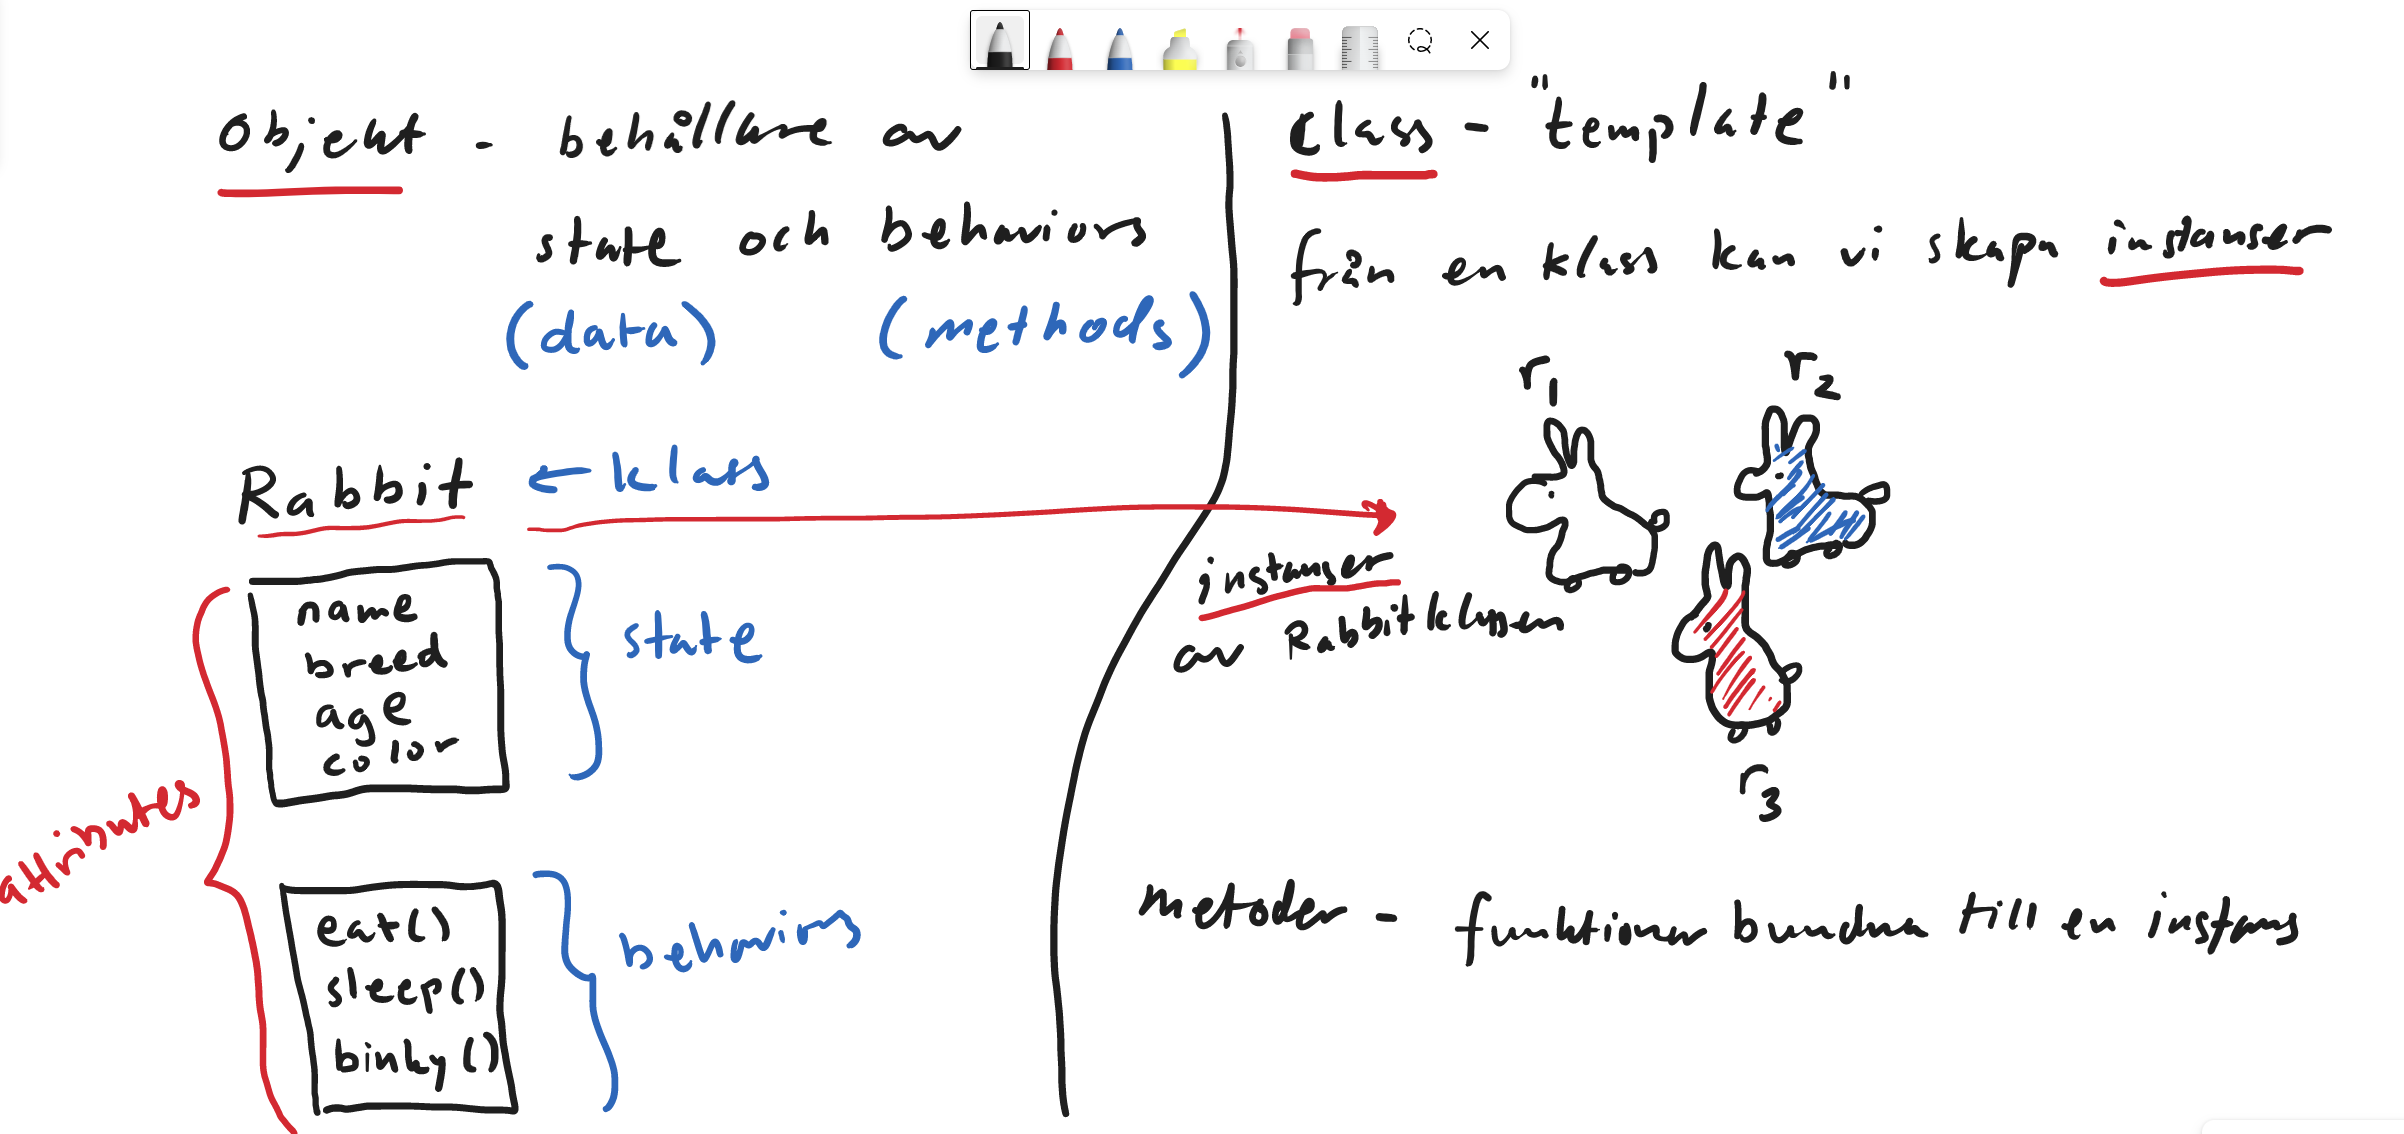 Objekt - behållare av
state och behaviors
(data) (methods)
Rabbit ← klass
name
breed
age
color
state
attributes
eat()
sleep()
binky()
behaviors
Class - "template"
från en klass kan vi skapa instanser
r1
r2
r3
instanser
av Rabbitklassen
metoder - funktioner bundna till en instans